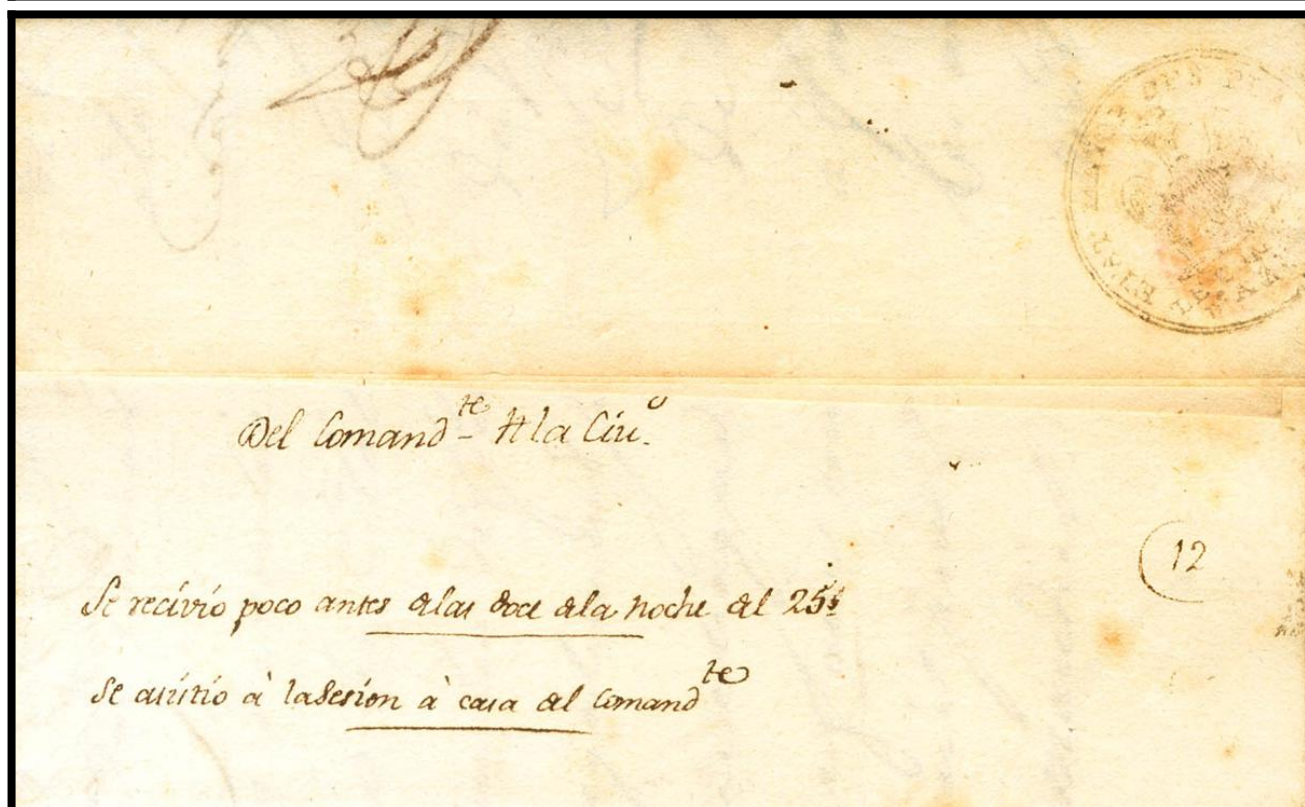 Del Comand.te de la Ciu.d
12
Se recivio poco antes delas doce dela noche del 25,,
Se asistio à la Sesion à casa del Comand.te